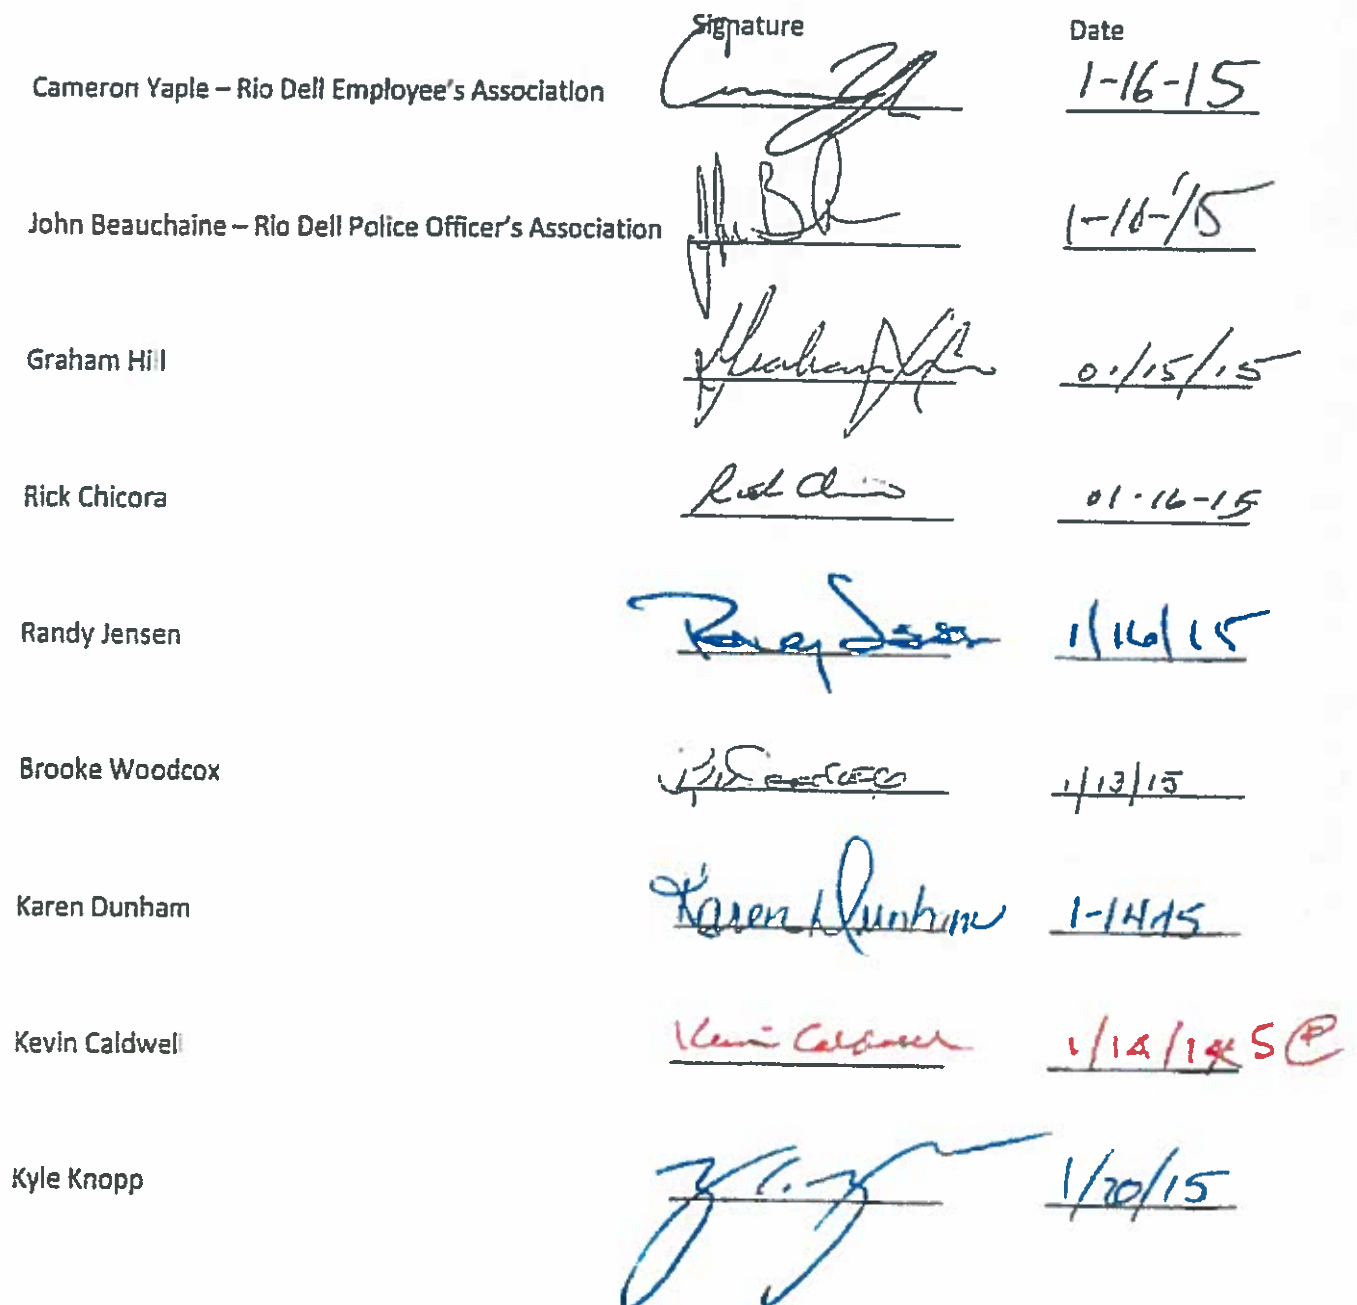 Signature Date
Cameron Yaple – Rio Dell Employee's Association 1-16-15
John Beauchaine – Rio Dell Police Officer's Association
Graham Hill Graham Hill 01/15/15
Rick Chicora Rick 01-16-15
Randy Jensen Randy Jensen 1/16/15
Brooke Woodcox 1/13/15
Karen Dunham Karen Dunham 1-14-15
Kevin Caldwell Kevin Caldwell 1/14/14 5
Kyle Knopp 1/20/15